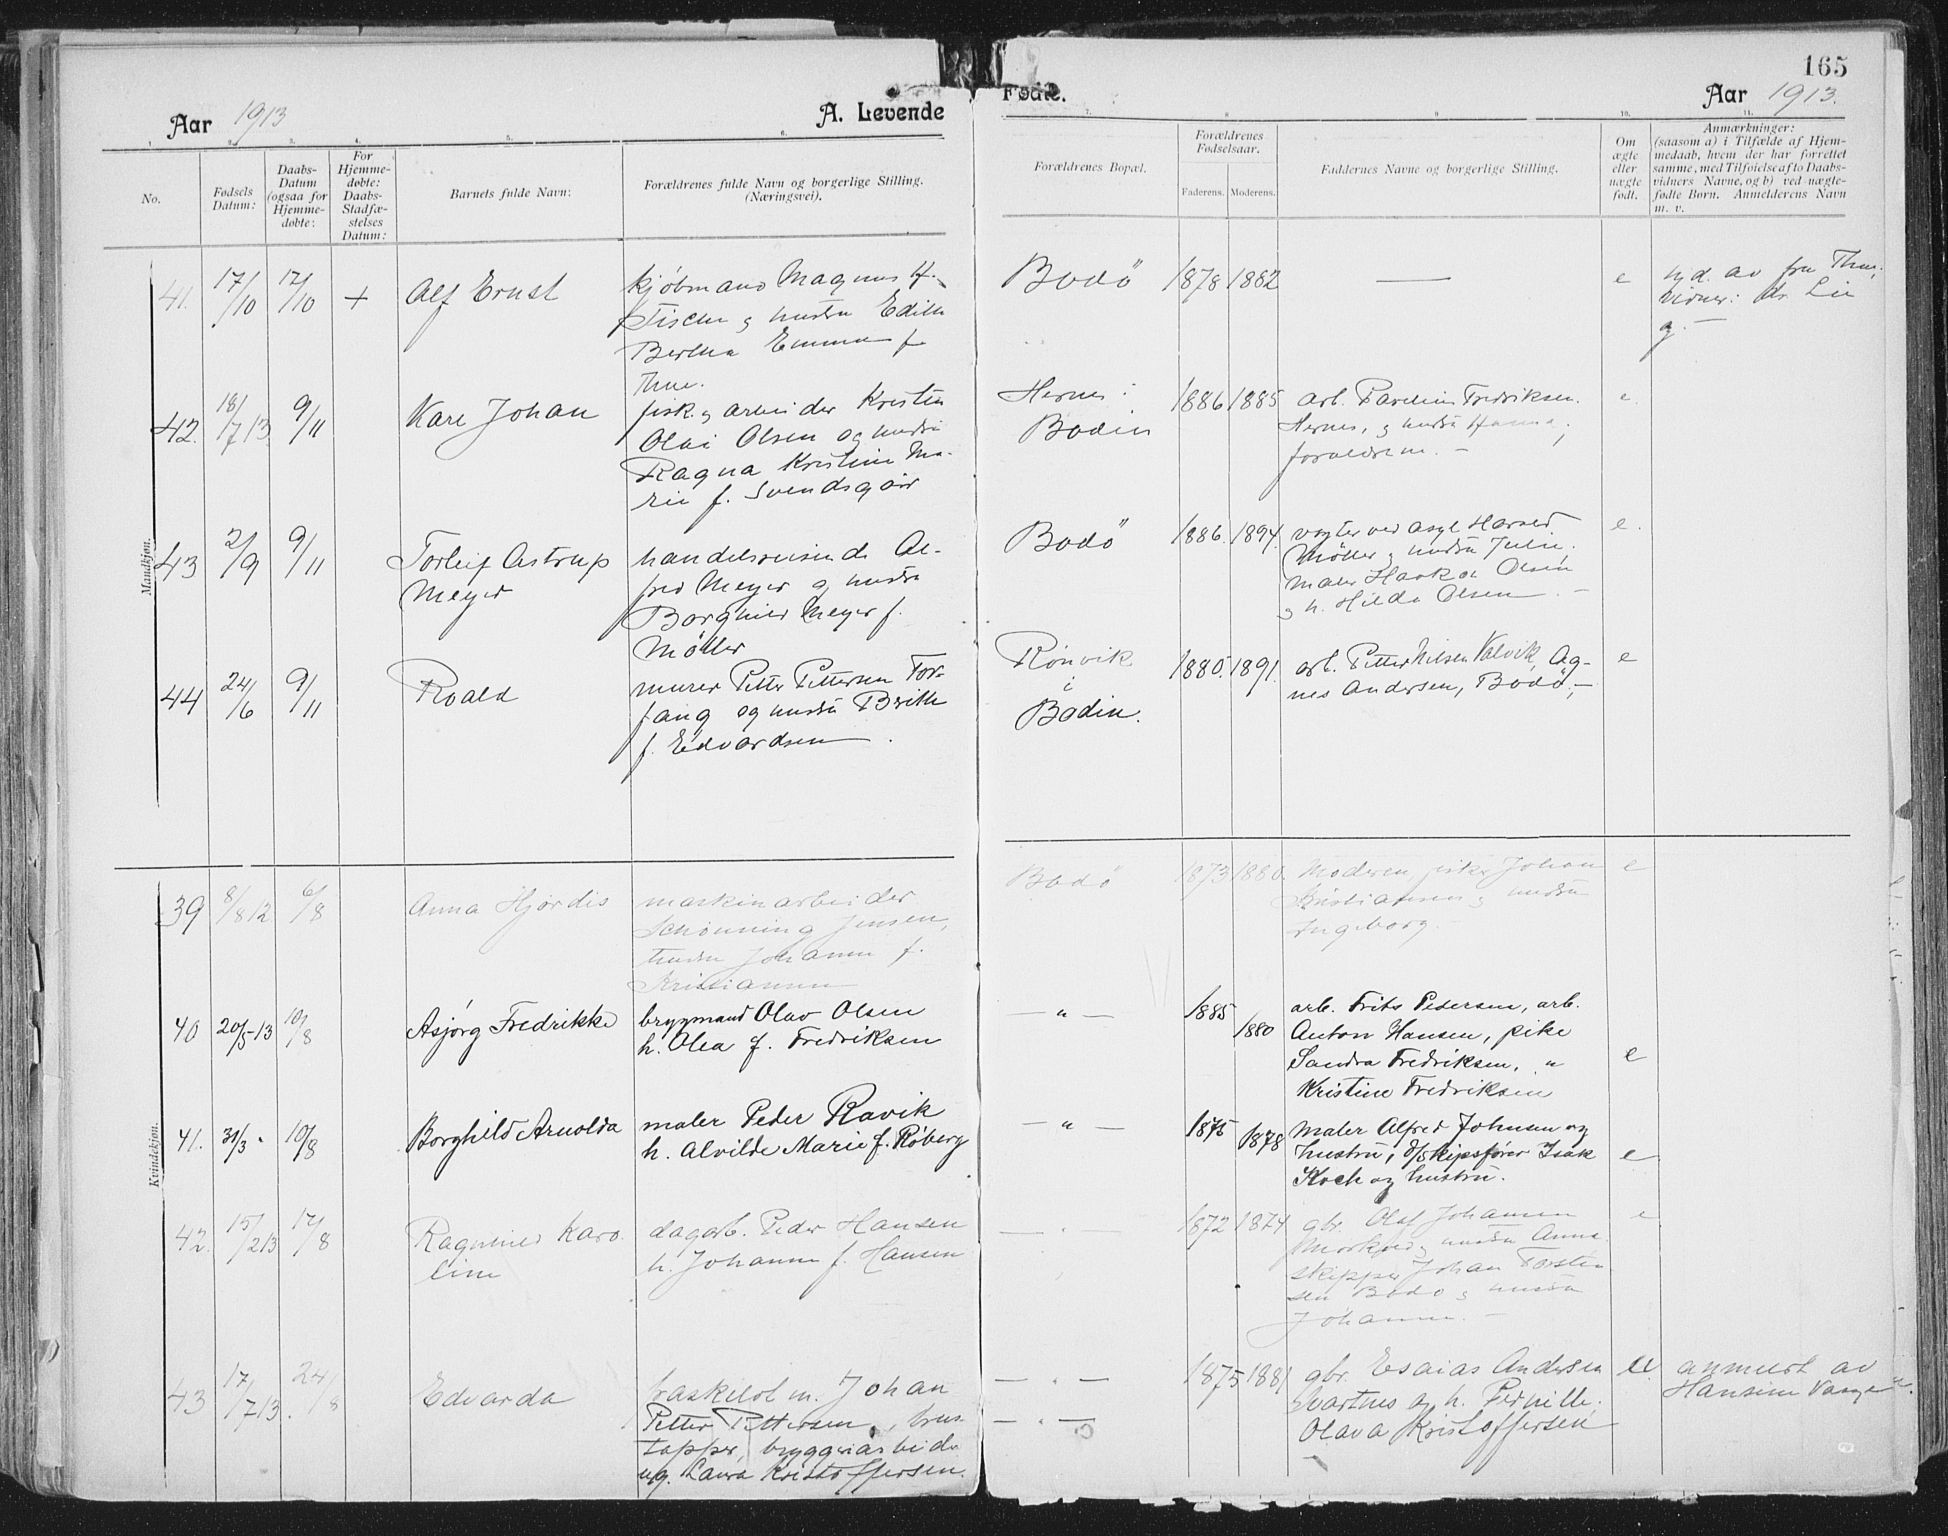 165
Aar 1913
A. Levende
Fødte.
Aar 1913.
1. 2. 3. 4. 5. 6. 7. 8 9 10. 11.
No.
Fødsels Datum:
Daabs-Datum (ogsaa for Hjemme-døbte:
For Hjemme-døbte: Daabs-Stadfæ-stelses Datum:
Barnets fulde Navn:
Forældrenes fulde Navn og borgerlige Stilling.
(Næringsvei).
Forældrenes Bopæl.
Forældrenes Fødselsaar.
Faderens. Moderens.
Faddernes Navne og borgerlige Stilling.
Om ægte eller uægte født.
Anmærkninger:
(saasom a) i Tilfælde af Hjem-
medaab, hvem der har forrettet
samme, med Tilføielse af to Daabs-
vidners Navne, og b) ved uægte-
fødte Børn. Anmelderens Navn
m. v.
Mandkjøn.
41. 17/10 17/10 + Alf Ernst
kjøbmand Magnus H.
Fischer g hustru Edith
Bertha Emma f
Thue.
Bodö 1878 1882 — e
av fru Thue.
vidner: dr. Lie
g. —
42. 18/7 13 9/11 Kare Johan
fisk. g arbeider Kristen
Olai Olsen og hustru
Ragna Kristine Ma-
rie f. Svendsgår
Hernes i
Bodin
1886 1885 arb. Parelius Fredriksen.
Hernes, g hustru Hanna,
forældrene. —
e.
43 2/9 9/11 Torleif Astrup
Meyer
handelsreisende Al-
fred Meyer g hustru
Borghild Meyer f.
Møller
Bodö 1886. 1894. vogter ved asyl Harald
Möller g hustru Julie,
maler Haakon Olsen
g h. Hilda Olsen —
e.
44 24/6 9/11 Roald
murer Petter Pettersen For-
fang og hustru Brithe
f. Edvardsen
Rönvik
i
Bodin.
1880. 1891. arb. Petter Nilsen Valvik, Ag-
nes Andersen, Bodö, —
e
Kvindekjøn.
39 8/8 12 6/8 Anna Hjørdis
maskinarbeider
Schönning Jensen,
hustru Johanne f.
Kristiansen
Bodö 1873 1880. Moderen, fisker Johan
Kristiansen g hustru
Ingeborg —
e
40 20/5-13 10/8 Asjørg Fredrikke
bryggmand Olav Olsen
h. Olea f. Fredriksen
— " — 1885 1880
arb. Frits Pedersen, arb.
Anton Hansen, pike
Sandra Fredriksen, "
Kristine Fredriksen
e
41. 31/3 " 10/8 Borghild Arnolda
maler Peder Ravik
h. Alvilde Marie f. Røberg
— " — 1875 1878
maler Alfred Johnsen og
hustru, d/skipsfører Isak
Koch og hustru.
e
42. 15/2 13 17/8 Ragnhild Karo
line
dagarb. Peder Hansen
h. Johanne f. Hansen
— " — 1872 1874 gbr. Olaf Johansen
Mørkved g hustru Anna
skipper Johan Torsten
sen Bodø g hustru
Johanne. —
e
43 17/7 13. 24/8 Edvarda
fraskilt m. Johan
Petter Pettersen,
tapper, bryggeriarbeider
ug. Laura Kristoffersen.
— " —
— " —
1875 1881 gbr. Esaias Andersen
Svartnes og h. Pernille.
Olava Kristoffersen
ue
anmeldt av
Hansine